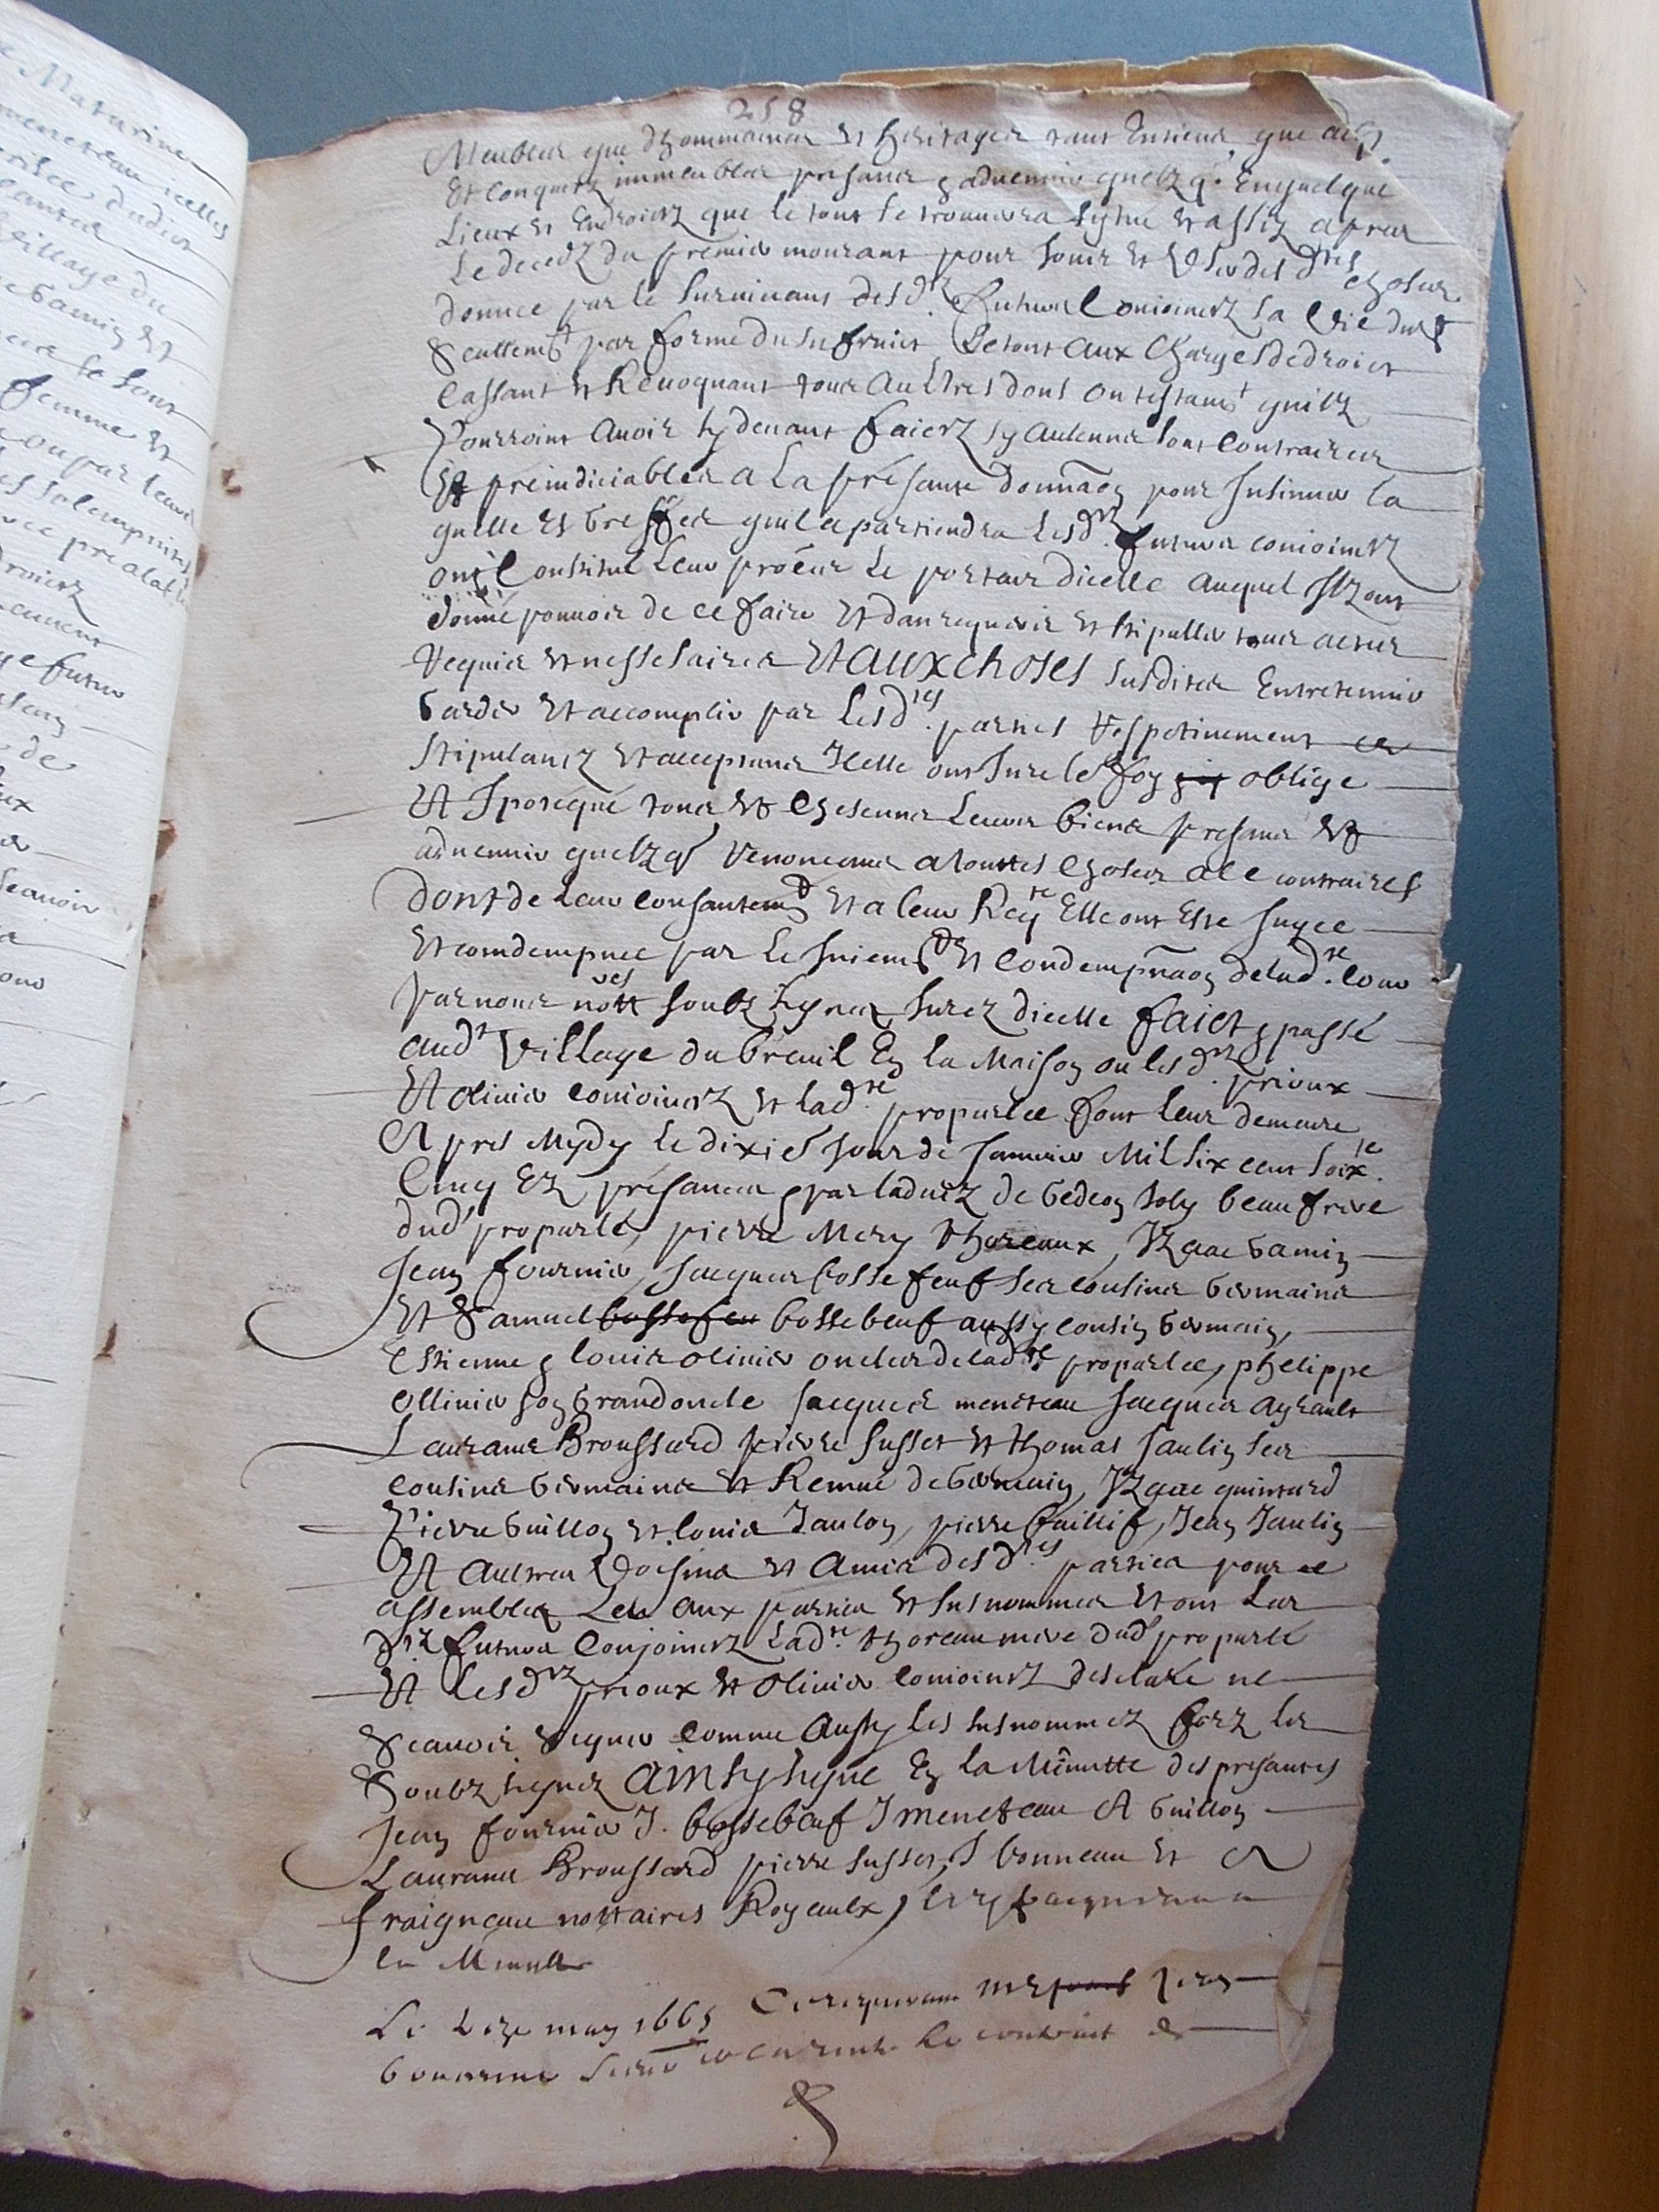 258
Meubles que dhommaines et heritages tant Entiens que acqs
Et Conquetz immeubles presans & advennir quelzq. En quelque
Lieux et Endroictz que le tout se trouvera sythué et assiz apres
Le decedz du premier mourant pour Jouir et User des dtes choses
donnee par le survivant desdtz futurs Conioinctz sa Vie durt
Seullemt par forme dusufruict Le tout aux Charges de droict
Cassant et Revoquant tous Aultres dons ou testamt quilz
Pourroint Avoir sy devant faictz sy aulcuns sont Contraires
Et preiudiciables a La presante donnãon pour Insinuer la
quelle Es Greffes quil apartiendra Lesdtz futurs conioinctz
ont Constitué Leur procẽur Le porteur dicelle Auquel Ilz ont
donné pouvoir de ce faire Et dan requerir et stipuller tous actes
Requis et nessesaires Et aux choses susdites Entretennir
Garder et accomplir par Lesdtes parties Respetivement
Stipulantz et acceptans Icelle ont Juré le foy oblige
Et Ipotequé tous et Chescuns Leurs biens presans et
advennir quelzq. Renoncans a touttes Choses a ce contraires
dont de Leur consantemt et a leur Reqte Elle ont Este Jugee
et comdempnee par Le Jugemt et Condempnãon de lad.te Cour
par nous nottres soubz sygnez Jurez dicelle faict & passé
audt Village du breuil En la Maison ou lesdtz prioux
Et Olivier conioinctz et ladte proparlee font leur demeure
Apres Mydy le dixie Jour de Janvier Mil six cent Soixte
Cinq Ez presances & par ladvis de Gedeon Joly beau frere
dudt proparlé, pierre Mery thoreaux, Izaac Gamin
Jean fournier, Jacques bosse feuf ses cousins Germains
Et Samuel bossefeu bossebeuf aussy cousin Germain,
Estienne & louis olivier oncles de ladte proparlee, phelippe
Ollivier son Grand oncle Jacques meneteau Jacques Ayrault
Laurans Broussard pierre Susset et thomas Jaulin ses
cousins Germains et Remué de Germain, Izaac quintard
Pierre Guillon et louis Jaulon, pierre baillif, Jean Jaulin
Et Aultres Voisins et Amis desdtes parties pour ce
assemblez Leu aux parties et susnommes et ont Les
dtz futurs Conjoinctz Ladte thoreau mere dudt proparlé
Et Lesdtz prioux et Olivier conioinctz desclaré ne
Scavoir Signer comme Aussy les susnommez forz les
Soubz signez Ainsy signé En la Minutte des presantes
Jean fournier J. bossebeuf J meneteau A Guillon
Laurans Broussard pierre Susset, J bonneau et
fraigneau nottaires Royaulx,
la Minutte
Le may 1665